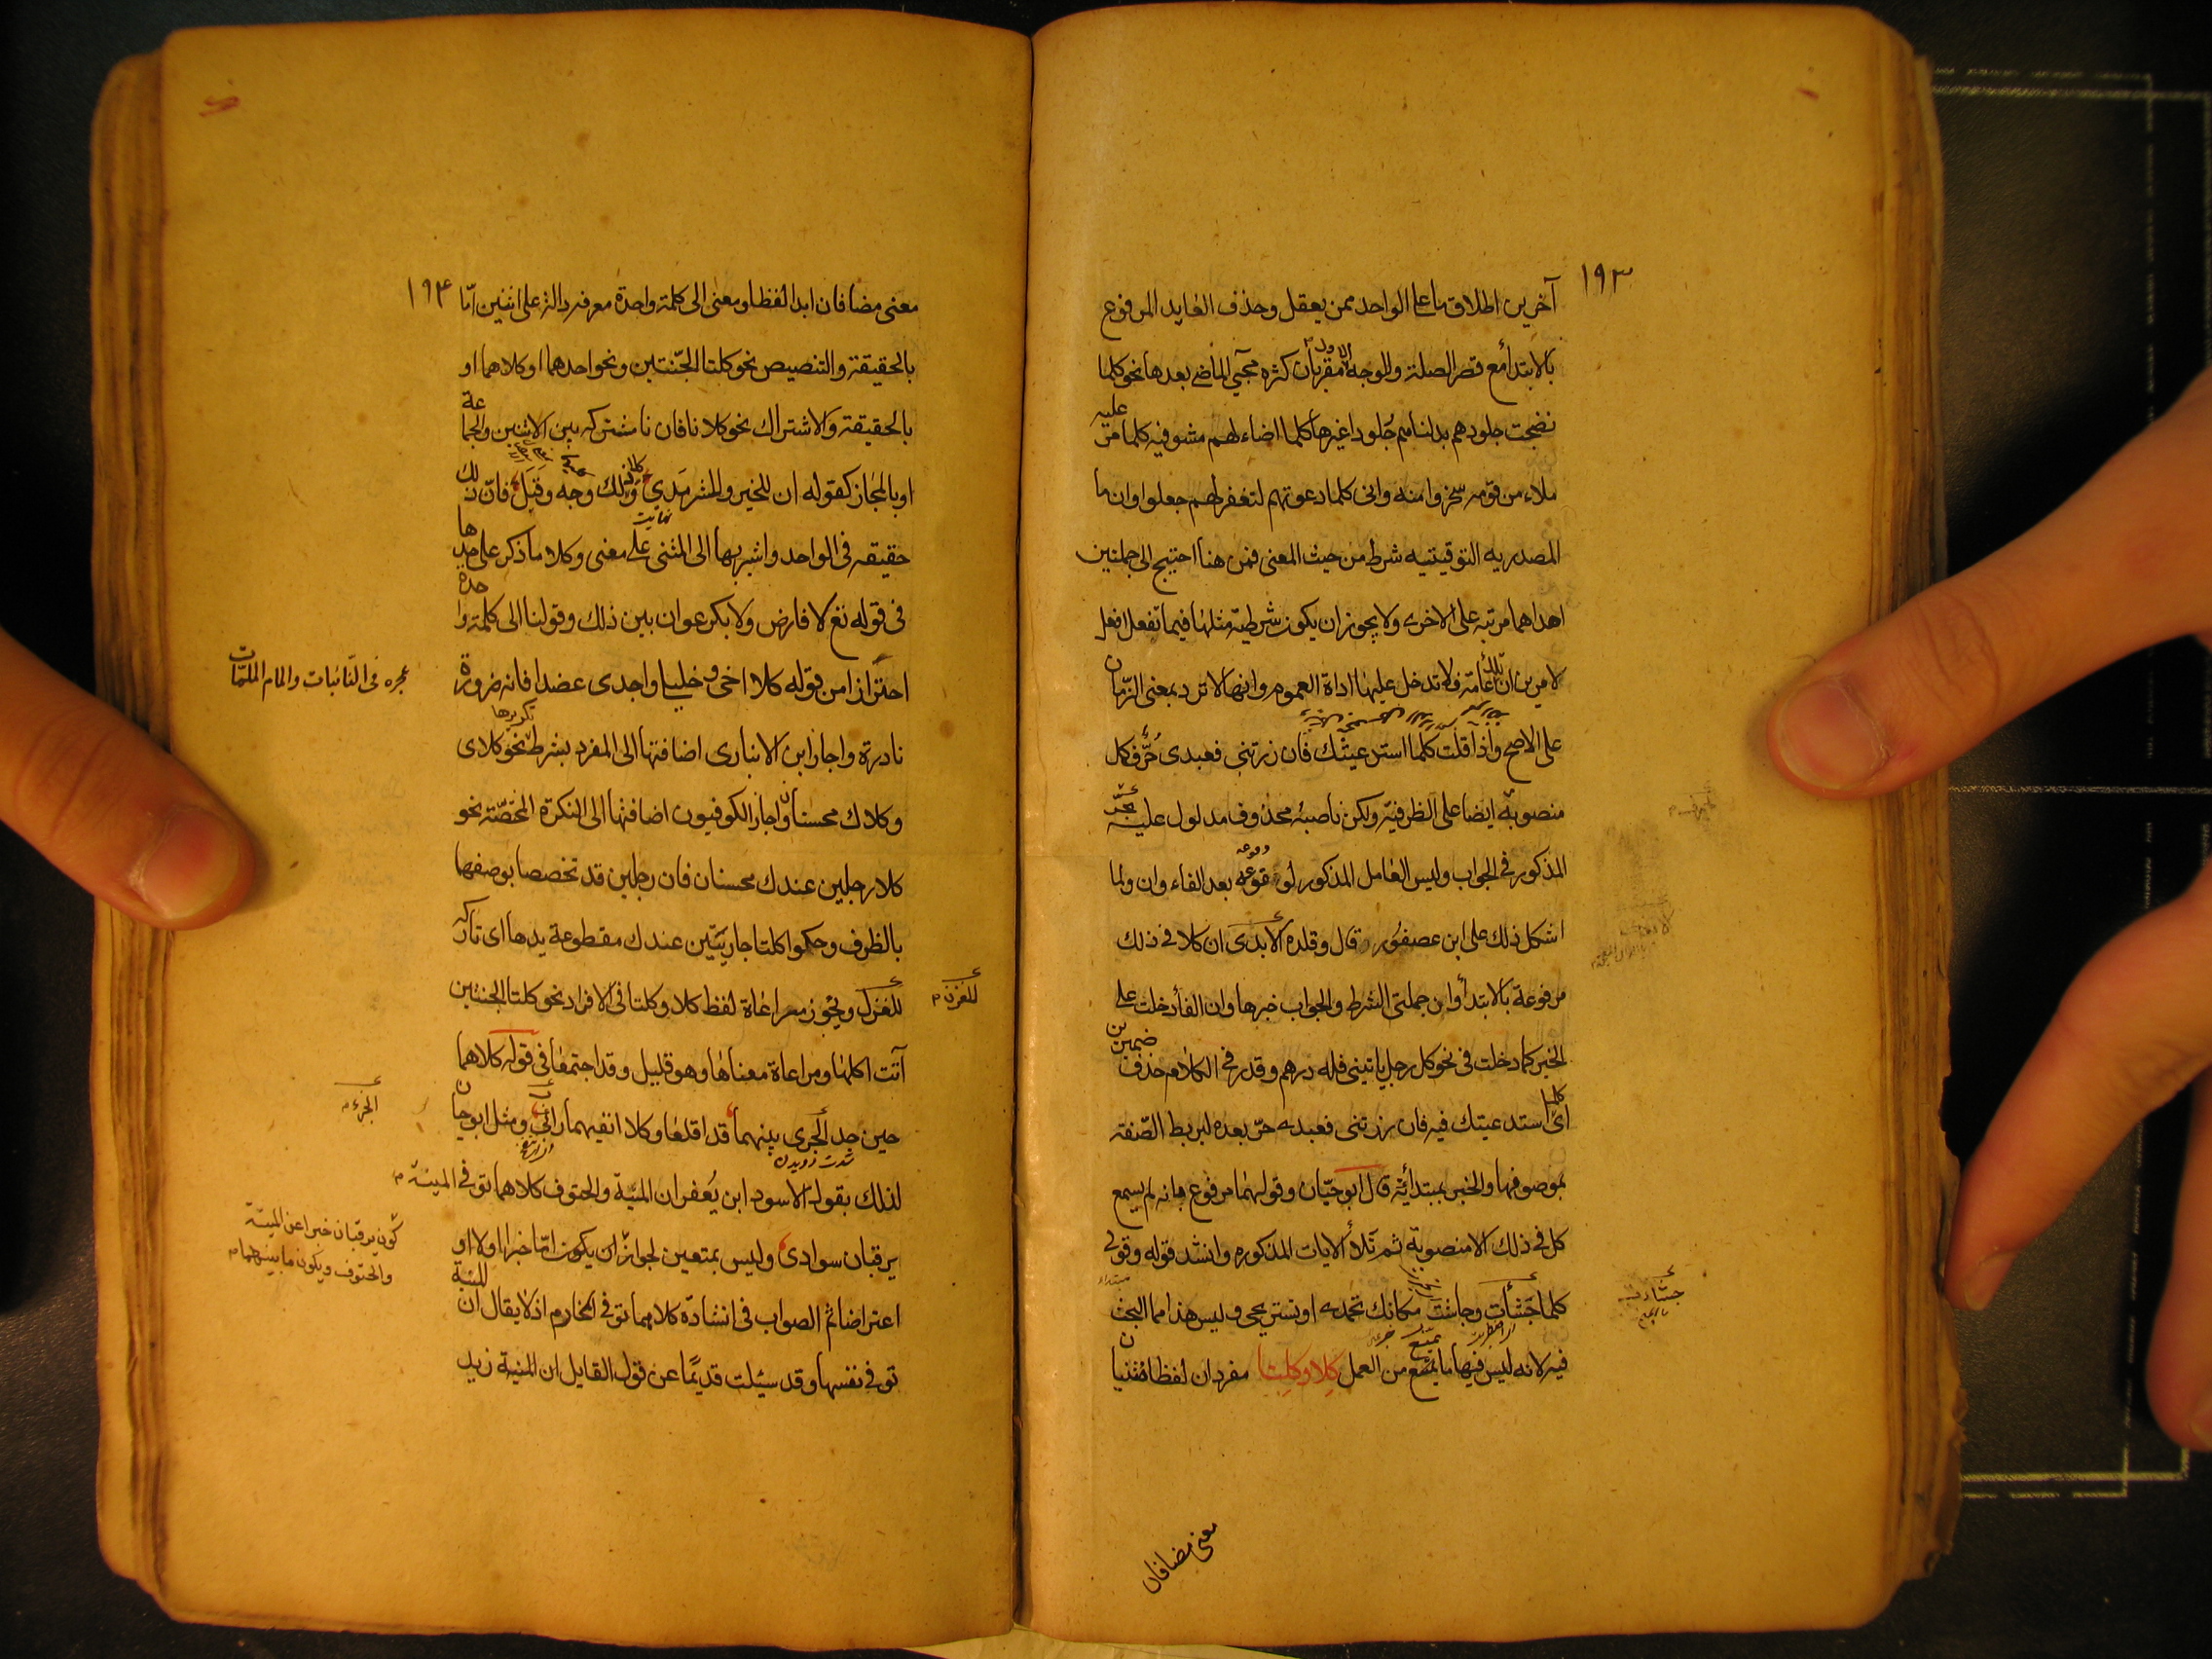 ١٩٣
آخرين اطلاق ما على الواحد ممن يعقل وحذف العايد المرفوع
بالابتدأ مع قصر الصلة والوجه الاول مقربان كثره مجيي الماضي بعدها نحو كلما
نضجت جلودهم بدلناهم جلودا غيرها كلما اضاء لهم مشوفيه كلما مر عليه
ملاء من قومه سخروا منه وانى كلما دعوتهم لتغفر لهم جعلوا وان ما
المصدريه التوقيتيه شرط من حيث المعنى فمن هنا احتيج الى جملتين
احداهما مرتبه على الاخرى ولا يجوز ان يكون شرطية مثلها في ما تفعل افعل
لامرين ان تلك عامة فلا تدخل عليها اداة العموم وانها لا ترد بمعنى الزمان
على الاصح واذا قلت كلما استدعيتك فان زرتني فعبدي حر فكل
منصوبة ايضا على الظرفية ولكن ناصبه محذوف مدلول عليه بحر
المذكور في الجواب وليس العامل المذكور لوقوعه بعد الفاء وان ولما
اشكل ذلك على ابن عصفور قال وقلده الأبدى ان كلا في ذلك
مرفوعة بالابتدأ وان جملتى الشرط والجواب خبرها وان الفأ دخلت على
الخبر كما دخلت في نحو كل رجل ياتيني فله درهم وقدر في الكلام حذف ضميرين
اى كلما استدعيتك فيه فان زرتنى فعبدى حر بعده ليربط الصفة
بموصوفها والخبر بمبتدأئه قال ابو حيان وقولهما مرفوع بانه لم يسمع
كل في ذلك الا منصوبة ثم تلأ الايات المذكوره وانشد قوله وقولى
كلما جشأت وجاشت مكانك تحمدى او تستريحى وليس هذا مما البحث
فيه لانه ليس فيها ما يمنع من العمل كلا وكلتا مفردان لفظا مثنيان
معنى مضافان
١٩٤
معنى مضافان ابدا لفظا ومعنى الى كلمة واحدة معرفه دالة على اثنين اما
بالحقيقة والتنصيص نحو كلتا الجنتين ونحو احدهما او كلاهما او
بالحقيقة والاشتراك نحو كلانا فان نا مشتركه بين الاثنين والجماعة
او بالمجاز كقوله ان للخير وللشر مدى وكلا ذلك وجه وقبل فان ذلك
حقيقه في الواحد واشير بها الى المثنى على معنى وكلا ما ذكر على حدها
فى قوله تع لا فارض ولا بكر عوان بين ذلك وقولنا الى كلمة واحدة
احتراز من قوله كلا اخى وخليلى واجدى عضدا فانه ضرورة
عجزه فى النائبات والمام الملمات
نادرة واجاز ابن الانبارى اضافتها الى المفرد بشرط تكريرها نحو كلاى
وكلاك محسنان واجاز الكوفيون اضافتها الى النكرة المختصة نحو
كلا رجلين عندك محسنان فان رجلين قد تخصصا بوصفها
بالظرف وحكوا كلتا جاريتين عندك مقطوعة يدها اى تاركه
للغزل ويجوز مراعاة لفظ كلا وكلتا فى الافراد نحو كلتا الجنتين
للغزل م
آتت اكلها ومراعاة معناها وهو قليل وقد اجتمعا فى قوله كلاهما
حين جد الجرى بينهما قد اقلعا وكلا انفيهما رابى ومثل ابو حيان
الجرى م
لذلك بقول الاسود ابن يعفر ان المنية والحتوف كلاهما توفى المنية م
يرقبان سوادى وليس بمتعين لجواز ان يكون اما خبرا اولا او
كون يرقبان خبرا عن المنية
والحتوف ويكون ما بينهما م
اعتراضا ثم الصواب فى انشاده كلاهما توفى المخارم اذ لا يقال ان المنية
توفى نفسها وقد سئلت قديما عن قول القايل ان المنية زيد